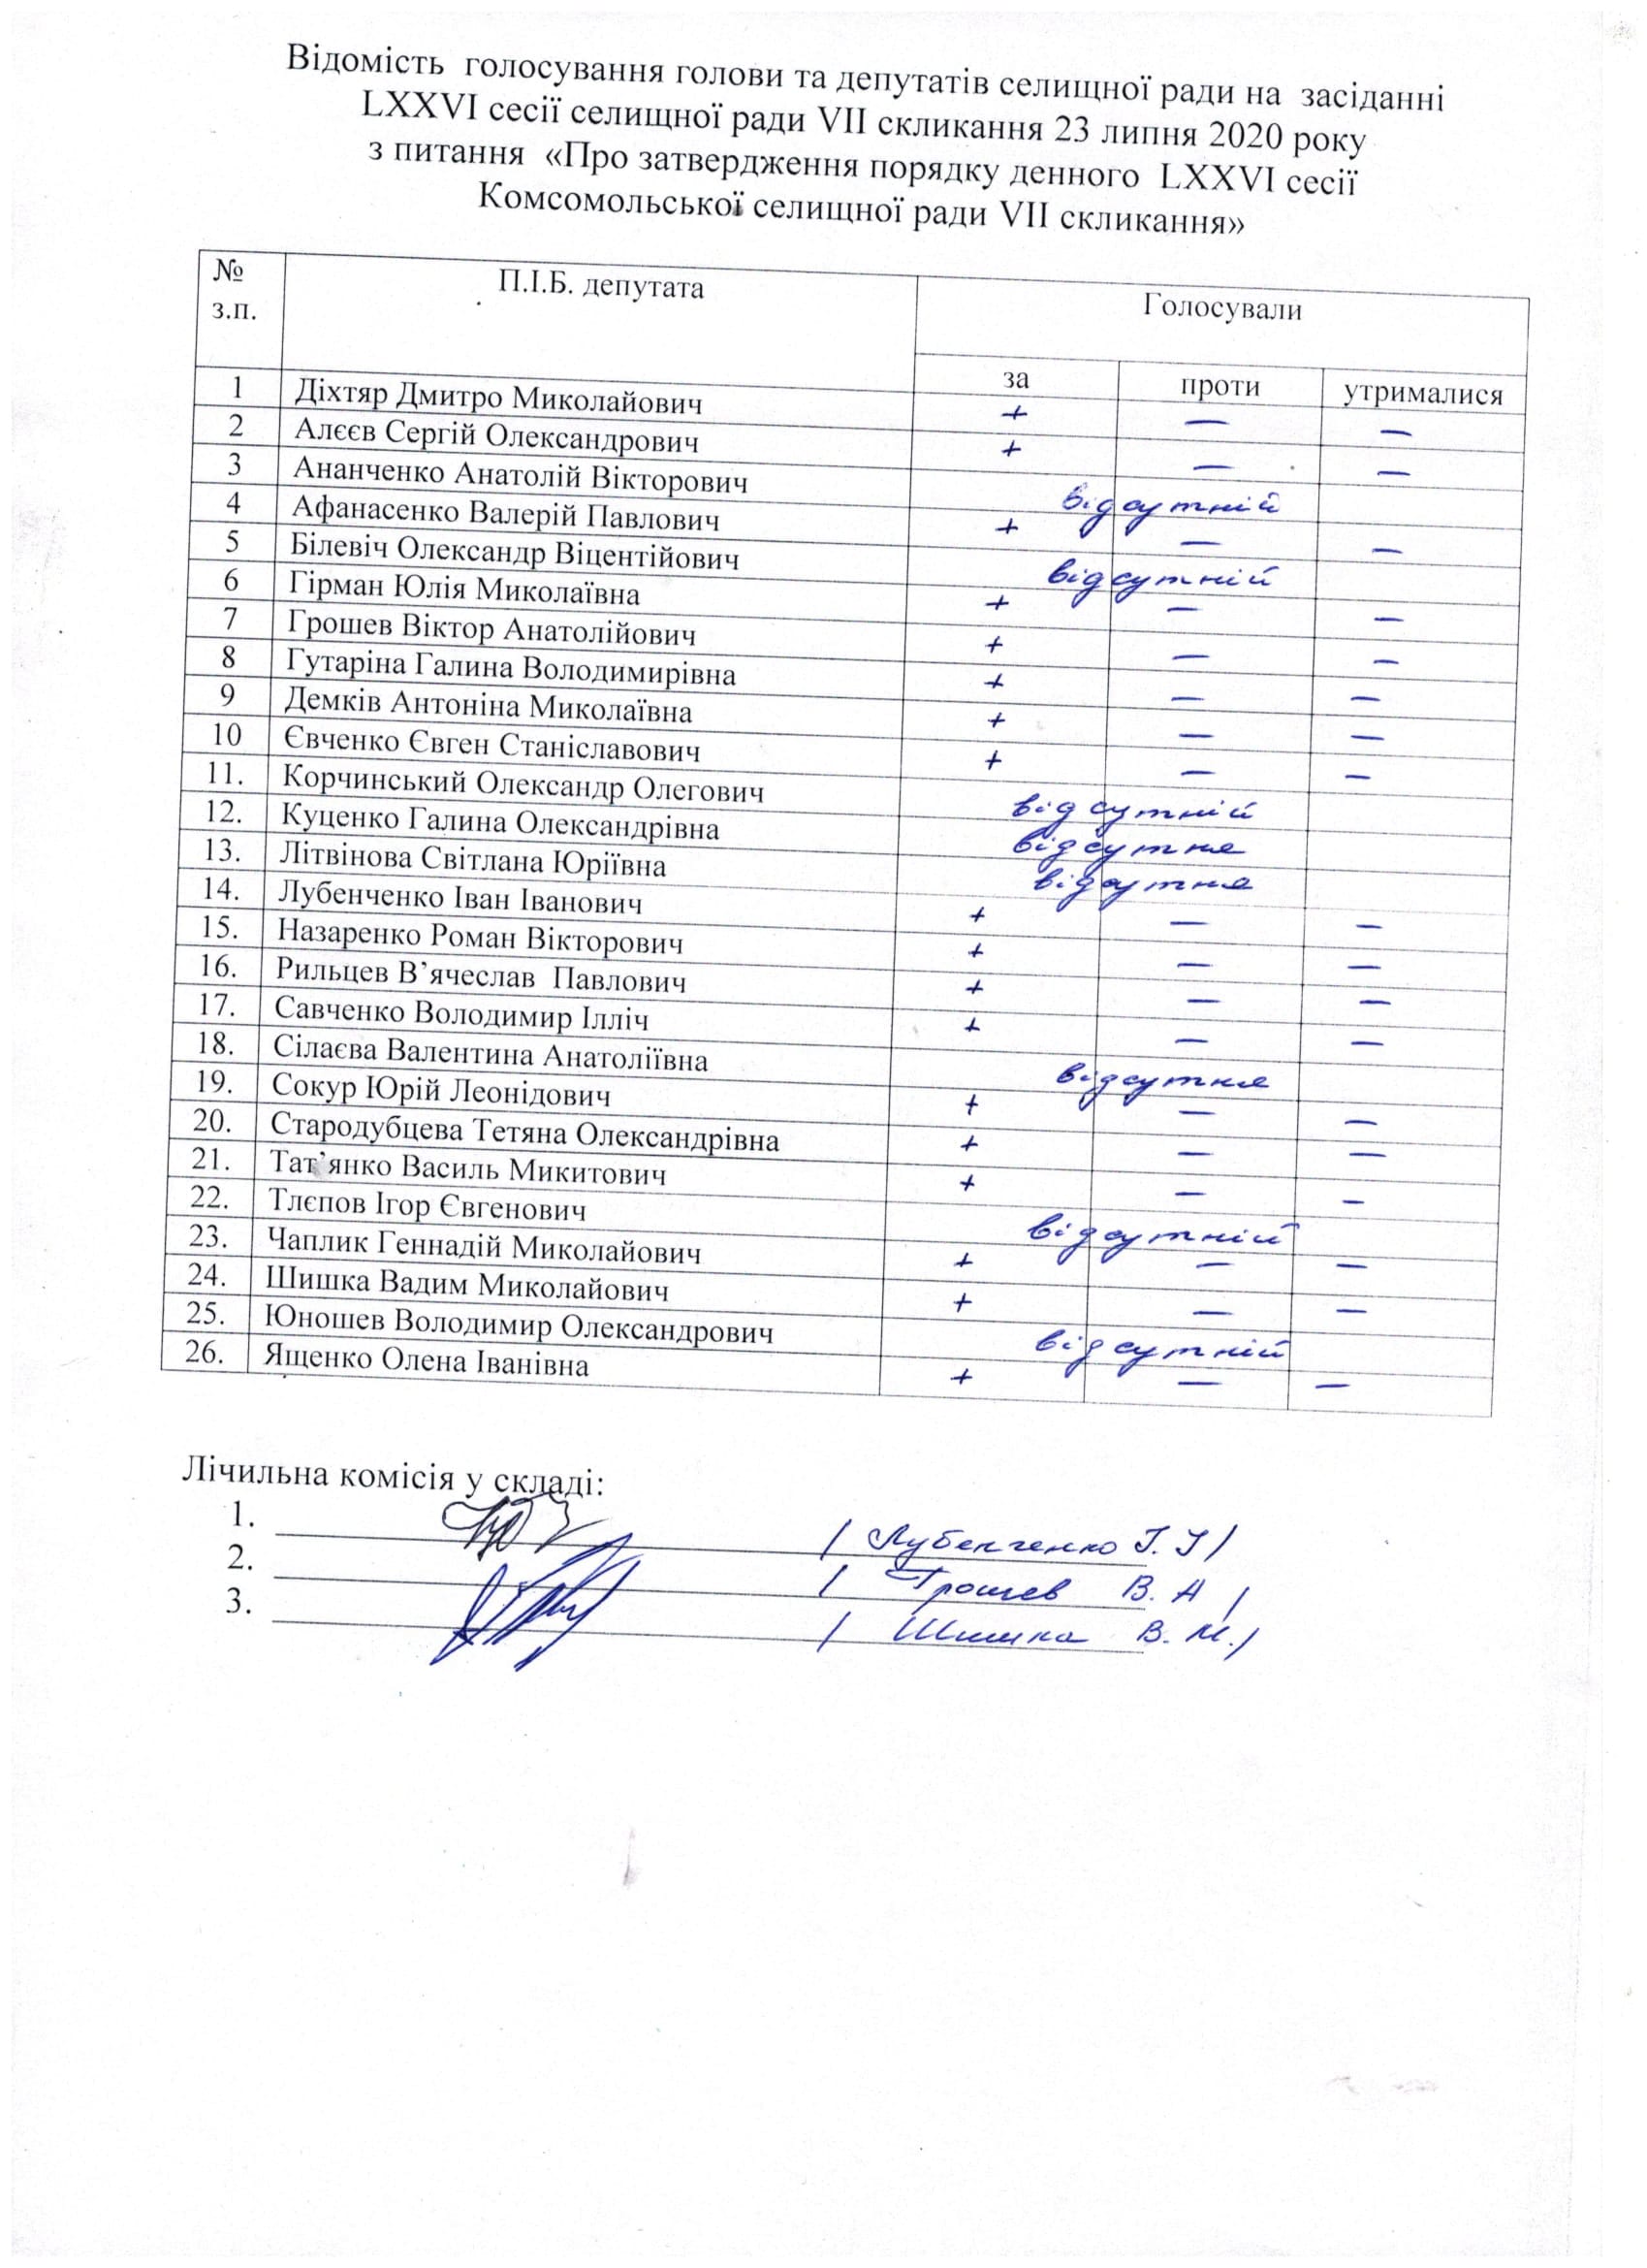 Відомість голосування голови та депутатів селищної ради на засіданні
LXXVI сесії селищної ради VII скликання 23 липня 2020 року
з питання «Про затвердження порядку денного LXXVI сесії
Комсомольської селищної ради VII скликання»
№ з.п. П.І.Б. депутата Голосували
за проти утрималися
1 Діхтяр Дмитро Миколайович + — —
2 Алєєв Сергій Олександрович + — —
3 Ананченко Анатолій Вікторович відсутній
4 Афанасенко Валерій Павлович + — —
5 Білевіч Олександр Віцентійович відсутній
6 Гірман Юлія Миколаївна + — —
7 Грошев Віктор Анатолійович + — —
8 Гутаріна Галина Володимирівна + — —
9 Демків Антоніна Миколаївна + — —
10 Євченко Євген Станіславович + — —
11. Корчинський Олександр Олегович відсутній
12. Куценко Галина Олександрівна відсутня
13. Літвінова Світлана Юріївна відсутня
14. Лубенченко Іван Іванович + — —
15. Назаренко Роман Вікторович + — —
16. Рильцев В’ячеслав Павлович + — —
17. Савченко Володимир Ілліч + — —
18. Сілаєва Валентина Анатоліївна відсутня
19. Сокур Юрій Леонідович + — —
20. Стародубцева Тетяна Олександрівна + — —
21. Тат’янко Василь Микитович + — —
22. Тлєпов Ігор Євгенович відсутній
23. Чаплик Геннадій Миколайович + — —
24. Шишка Вадим Миколайович + — —
25. Юношев Володимир Олександрович відсутній
26. Ященко Олена Іванівна + — —
Лічильна комісія у складі:
1. / Лубенченко І. І /
2. / Грошев В. А /
3. / Шишка В. М. /